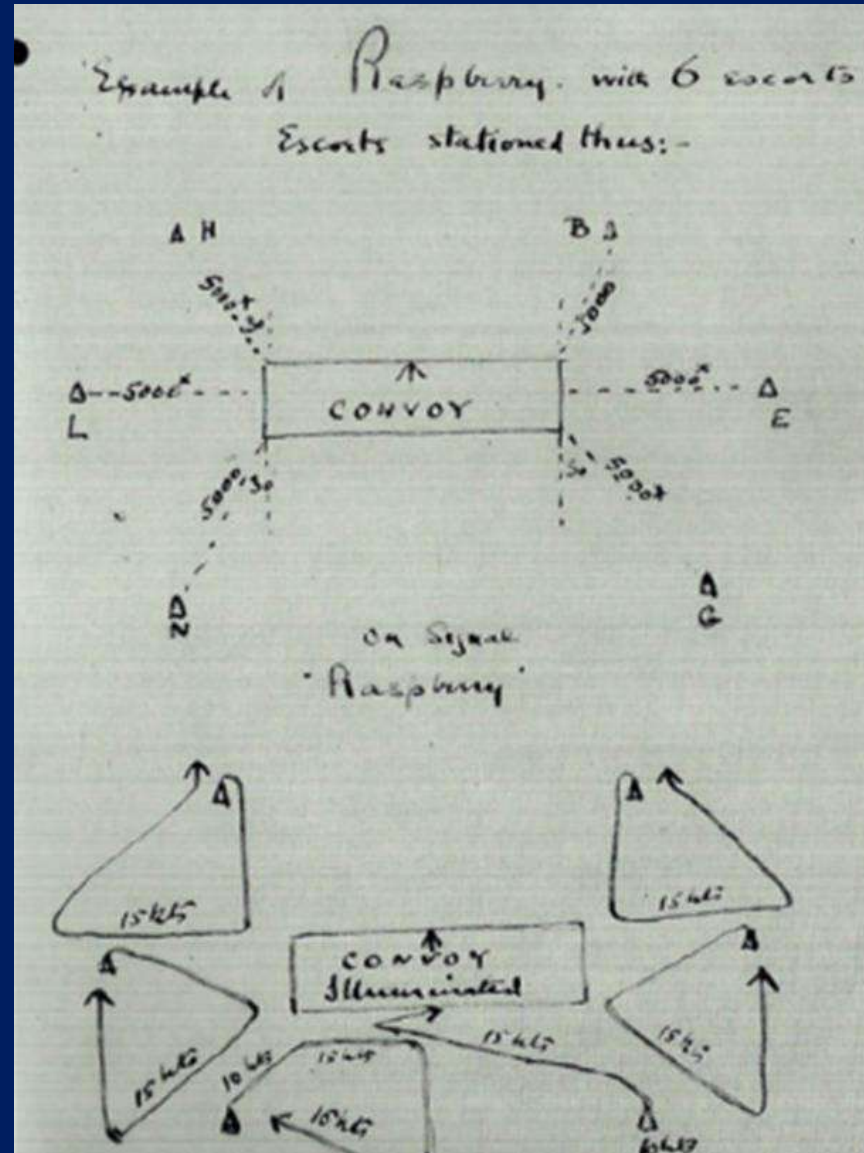 Example of Raspberry. with 6 escorts
Escorts stationed thus:-
H B
5000x 5000
L 5000x CONVOY 5000x E
5000x 30 30 5000x
N G
On Signal
"Raspberry"
15 kts 15 kts
CONVOY
Illuminated
15 kts 10 kts 15 kts 15 kts 15 kts
15 kts